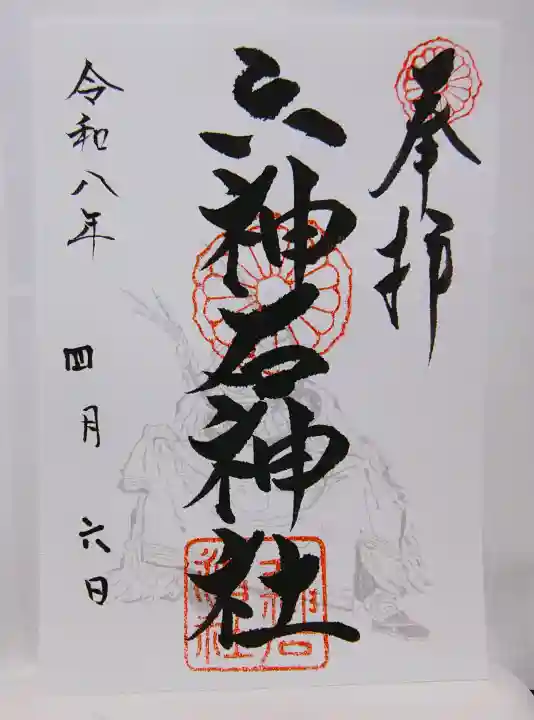 奉拝
六神石神社
令和八年 四月 六日